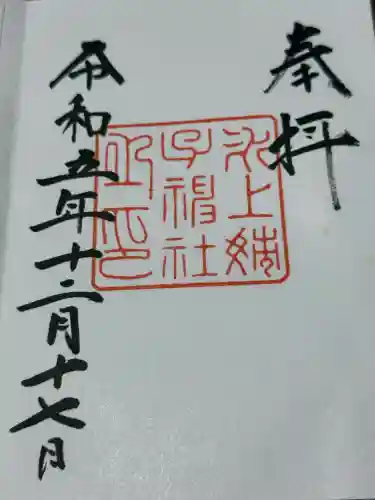 奉拝
氷上姉
子神社
之印
令和五年十二月十七日